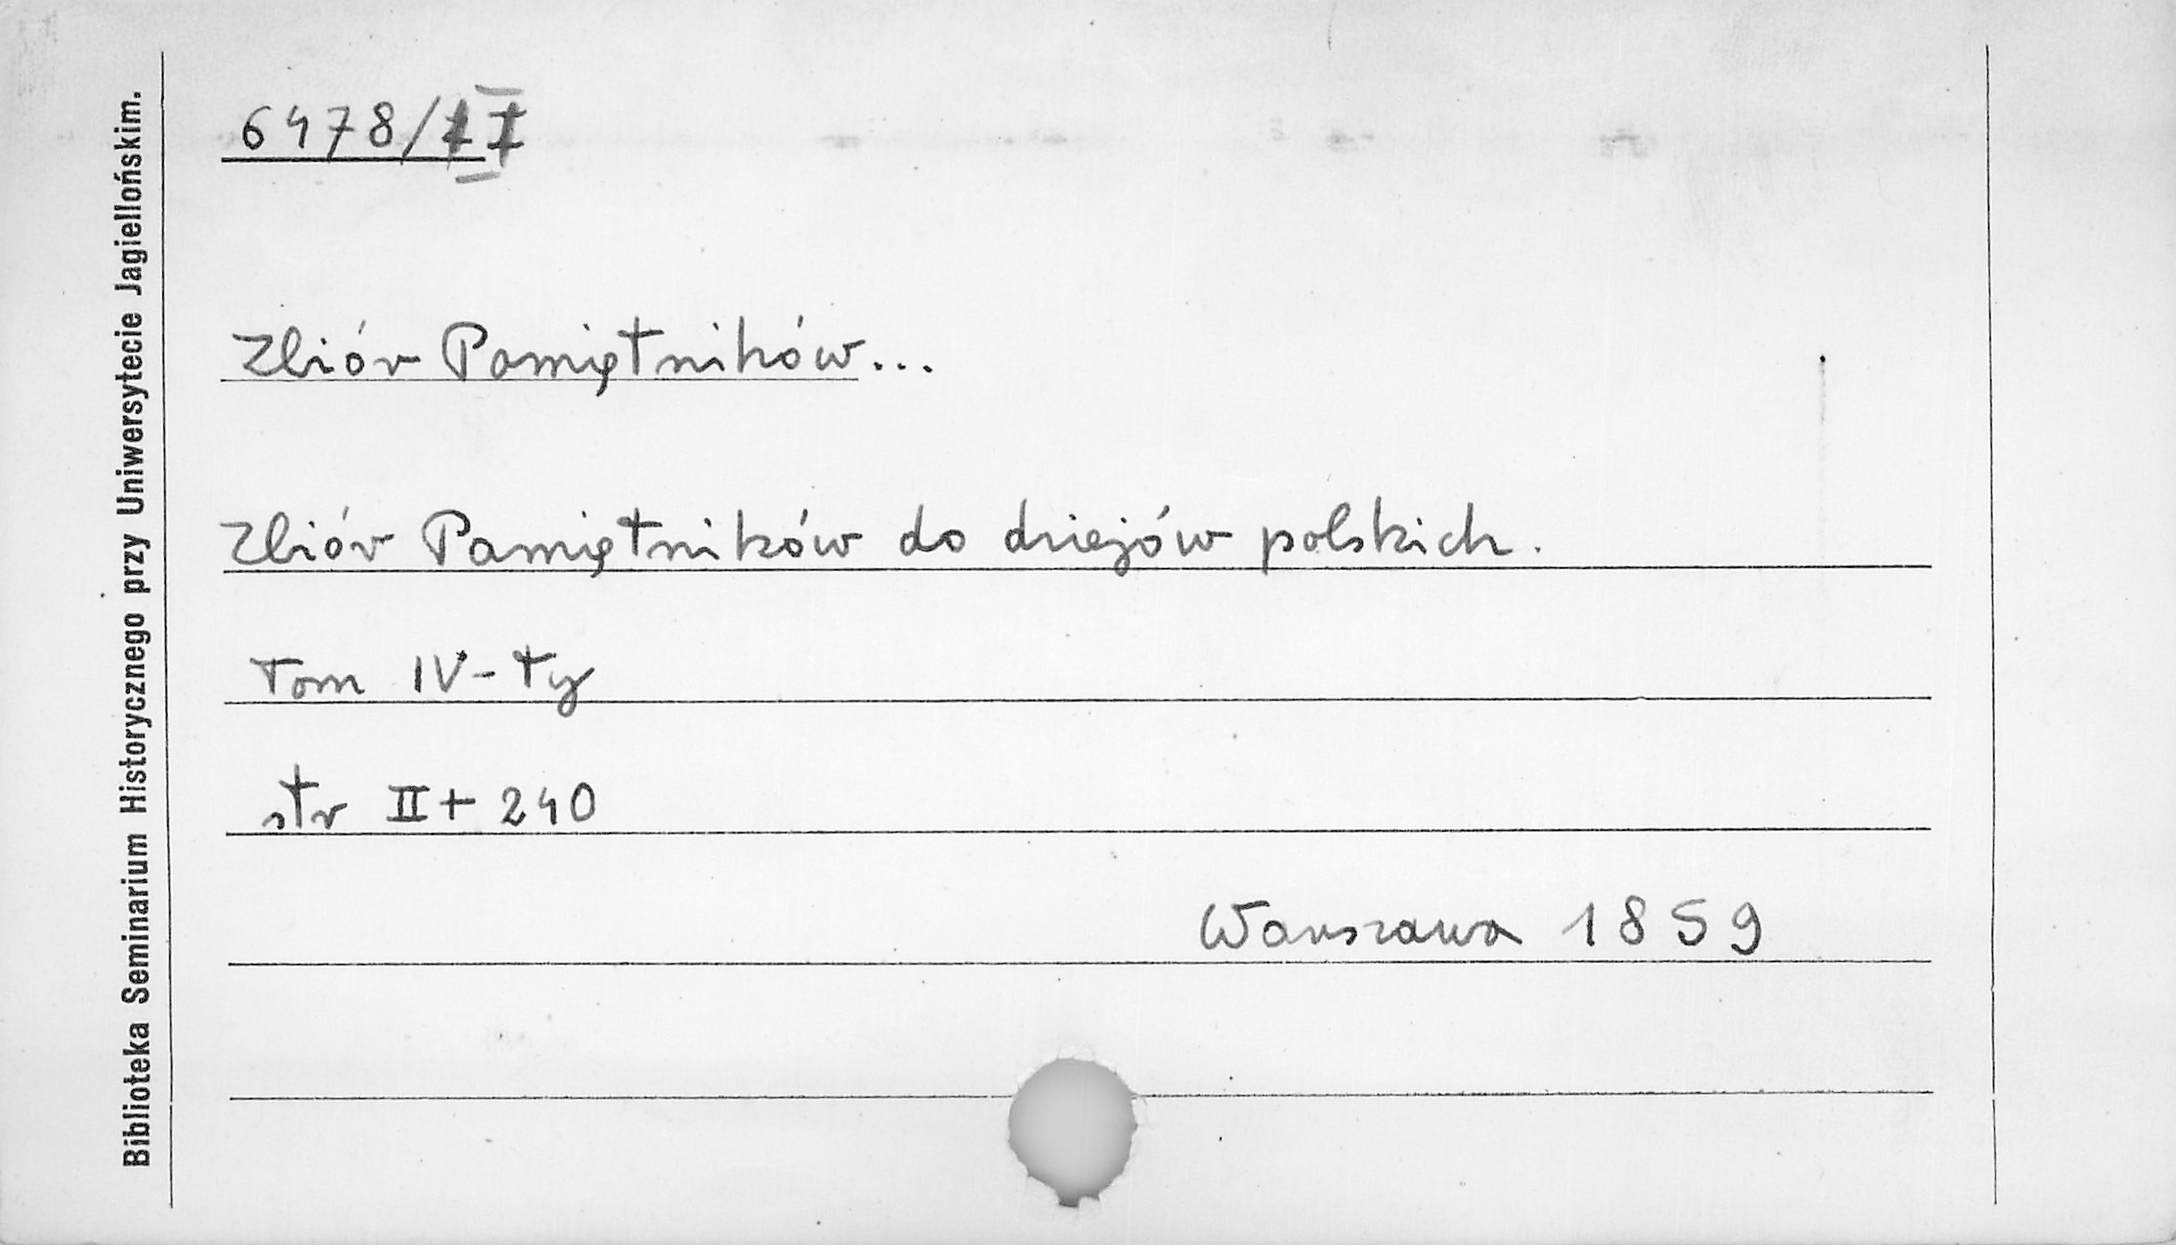 Biblioteka Seminarium Historycznego przy Uniwersytecie Jagiellońskim.
6478/II
Zbiór Pamiętników...
Zbiór Pamiętników do dziejów polskich.
Tom IV-ty
str II + 240
Warszawa 1859